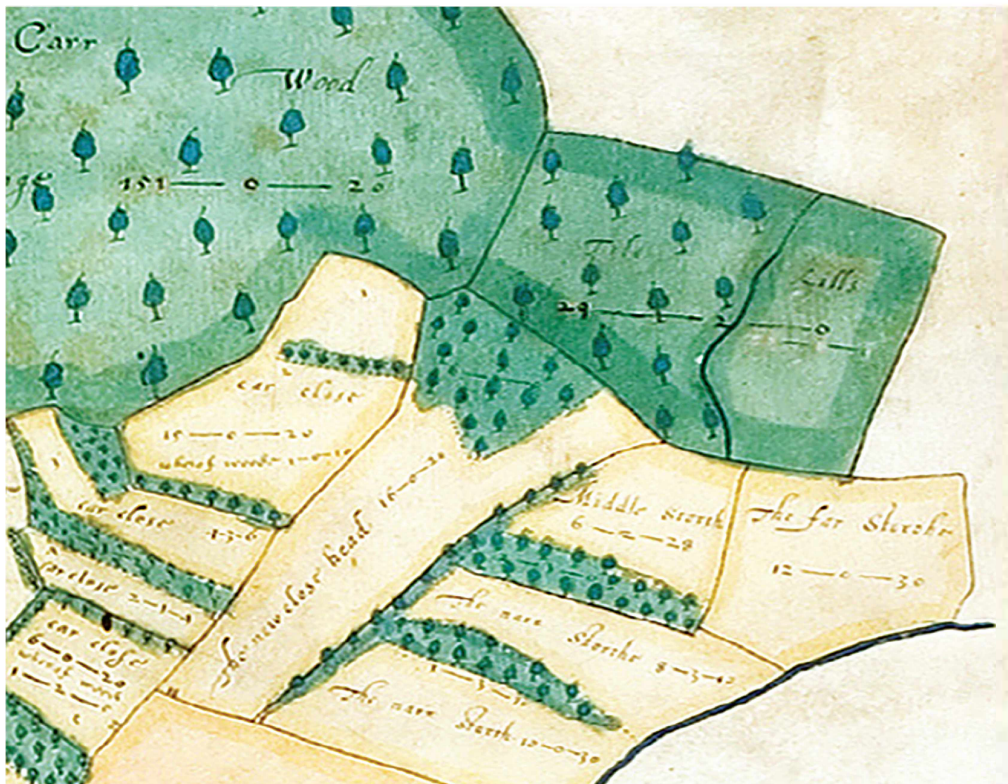 Carr
Wood
151 — 0 — 20
Lills
29 — 2 — 0
car close
15 — 0 — 20
whereof woode 1-0-10
car close
4-3-6
close 2-1-
car close
6-0-20
whereof wood
1-2-0
The new close head 16-0-20
Middle Storth
6 — 2 — 29
The far Storthe
12 — 0 — 30
The nare Storthe 8-3-10
1-3-
The nare Storth 10-0-30